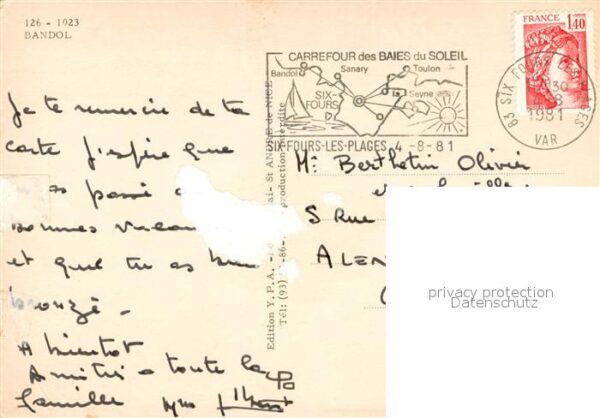 126 - 1023
BANDOL
Je te remercie de ta
carte j'espère que
as passé de
bonnes vacan
et que tu as bien
bronzé -
A bientôt
Amitiés à toute la
famille
Edition Y.P.A.
St ANDRÉ de NICE
Tél: (93)
-86-
production interdite
CARREFOUR des BAIES du SOLEIL
Bandol
Sanary
Toulon
SIX-
FOURS
La Seyne
SIX-FOURS-LES-PLAGES 4-8-81
FRANCE
1,40
83 SIX FOURS LES PLAGES
30
1981
VAR
Mr Berthelin Olivier
5 rue
ALEN
privacy protection
Datenschutz